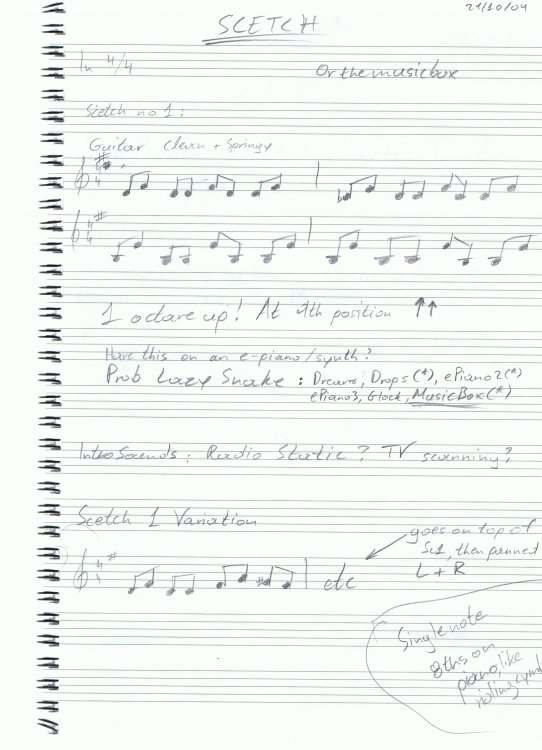 21/10/04
SCETCH
In 4/4
Or the musicbox
Scetch no 1:
Guitar Clean + Springy
4
4
4
4
1 octave up! At 9th position ↑↑
Have this on an e-piano/synth?
Prob Lazy Snake : Dreams, Drops(*), ePiano2(*)
ePiano3, Glock, MusicBox(*)
Intro Sounds: Radio Static? TV scanning?
Scetch 1 Variation
goes on top of
Sc1, then panned
L + R
4
4
etc
Single note
8ths on
piano, like